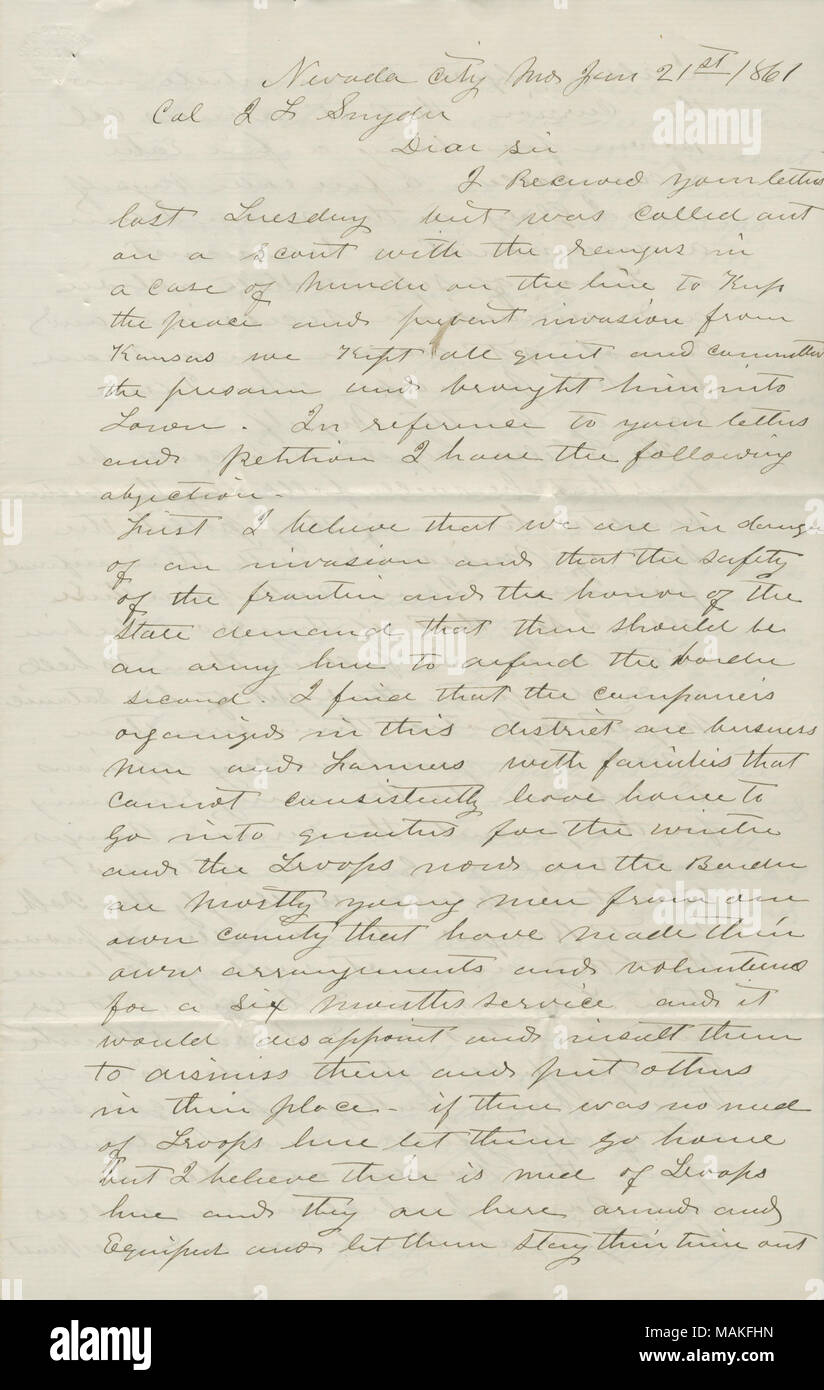 Nevada City Mo Jan 21st 1861
Col J F Snyder
Dear Sir
I Received your letters
last Tuesday but was called out
on a scout with the rangers in
a case of Murder on the line to Keep
the peace and prevent invasion from
Kansas we Kept all quiet and committed
the prisoner and brought him into
Town. In reference to your letters
and Petition I have the following
objection-
First I believe that we are in dange
of an invasion and that the safety
of the frontier and the honor of the
state demand that there should be
an army here to defend the border
second. I find that the companeis
organized in this district are business
men and Farmers with families that
cannot consistently leave home to
go into quarters for the winter
and the Troops now on the Border
are Mostly young men from our
own county that have made their
own arrangements and volunteered
for a six months service and it
would disappoint and insult them
to dismiss them and put others
in their place- if there was no need
of Troops here let them go home
but I believe their is need of Troops
here and they are here armed and
Equiped and let them stay their time out
alamy
alamy stock photo
MAKFHN
www.alamy.com